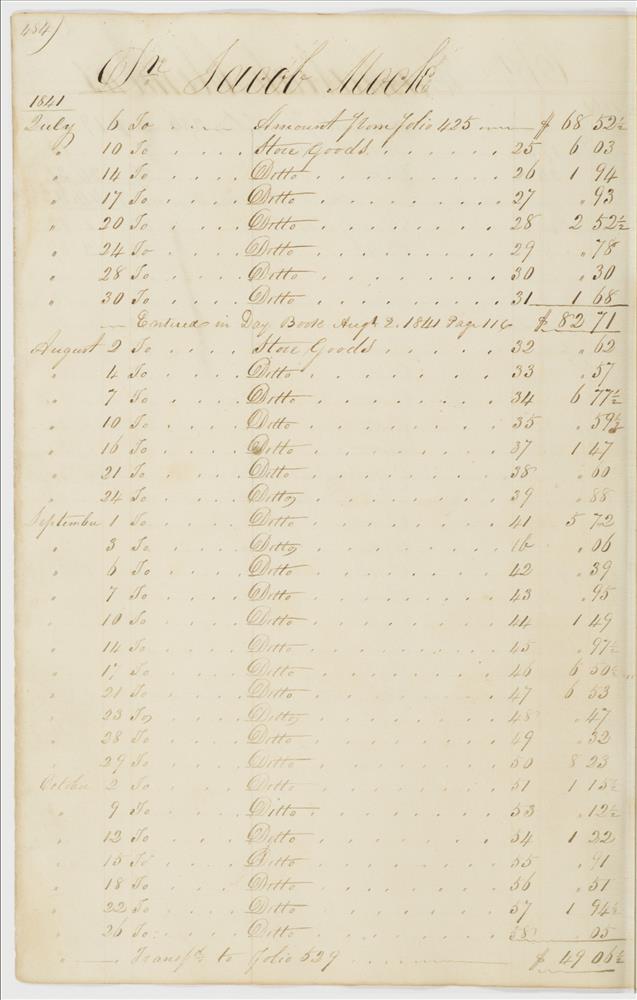 484)
Dr. Jacob Mock
1841
July 6 To .... Amount from folio 425 — $ 68 52½
" 10 To .... Store Goods ...... 25 6 03
" 14 To .... Ditto ........ 26 1 94
" 17 To .... Ditto ........ 27 " 93
" 20 To .... Ditto ........ 28 2 52½
" 24 To .... Ditto ........ 29 " 78
" 28 To .... Ditto ........ 30 " 30
" 30 To .... Ditto ........ 31 1 68
— Entered in Day Book Augt. 2. 1841 Page 116 $ 82 71
August 2 To .... Store Goods ..... 32 " 62
" 4 To .... Ditto ........ 33 " 57
" 7 To .... Ditto ........ 34 6 77½
" 10 To .... Ditto ........ 35 " 59½
" 16 To .... Ditto ........ 37 1 47
" 21 To .... Ditto ........ 38 " 60
" 24 To .... Ditto ........ 39 " 88
September 1 To .... Ditto ........ 41 5 72
" 3 To .... Ditto ........ 1b " 06
" 6 To .... Ditto ........ 42 " 39
" 7 To .... Ditto ........ 43 " 95
" 10 To .... Ditto ........ 44 1 49
" 14 To .... Ditto ........ 45 " 97½
" 17 To .... Ditto ........ 46 6 50½
" 21 To .... Ditto ........ 47 6 53
" 23 To .... Ditto ........ 48 " 47
" 28 To .... Ditto ........ 49 " 32
" 29 To .... Ditto ........ 50 8 23
October 2 To .... Ditto ........ 51 1 15½
" 9 To .... Ditto ........ 53 " 12½
" 12 To .... Ditto ........ 54 1 22
" 15 To .... Ditto ........ 55 " 91
" 18 To .... Ditto ........ 56 " 51
" 22 To .... Ditto ........ 57 1 94½
" 26 To .... Ditto ........ 58 " 05
" — Transfd. to folio 529 ...... $ 49 06½